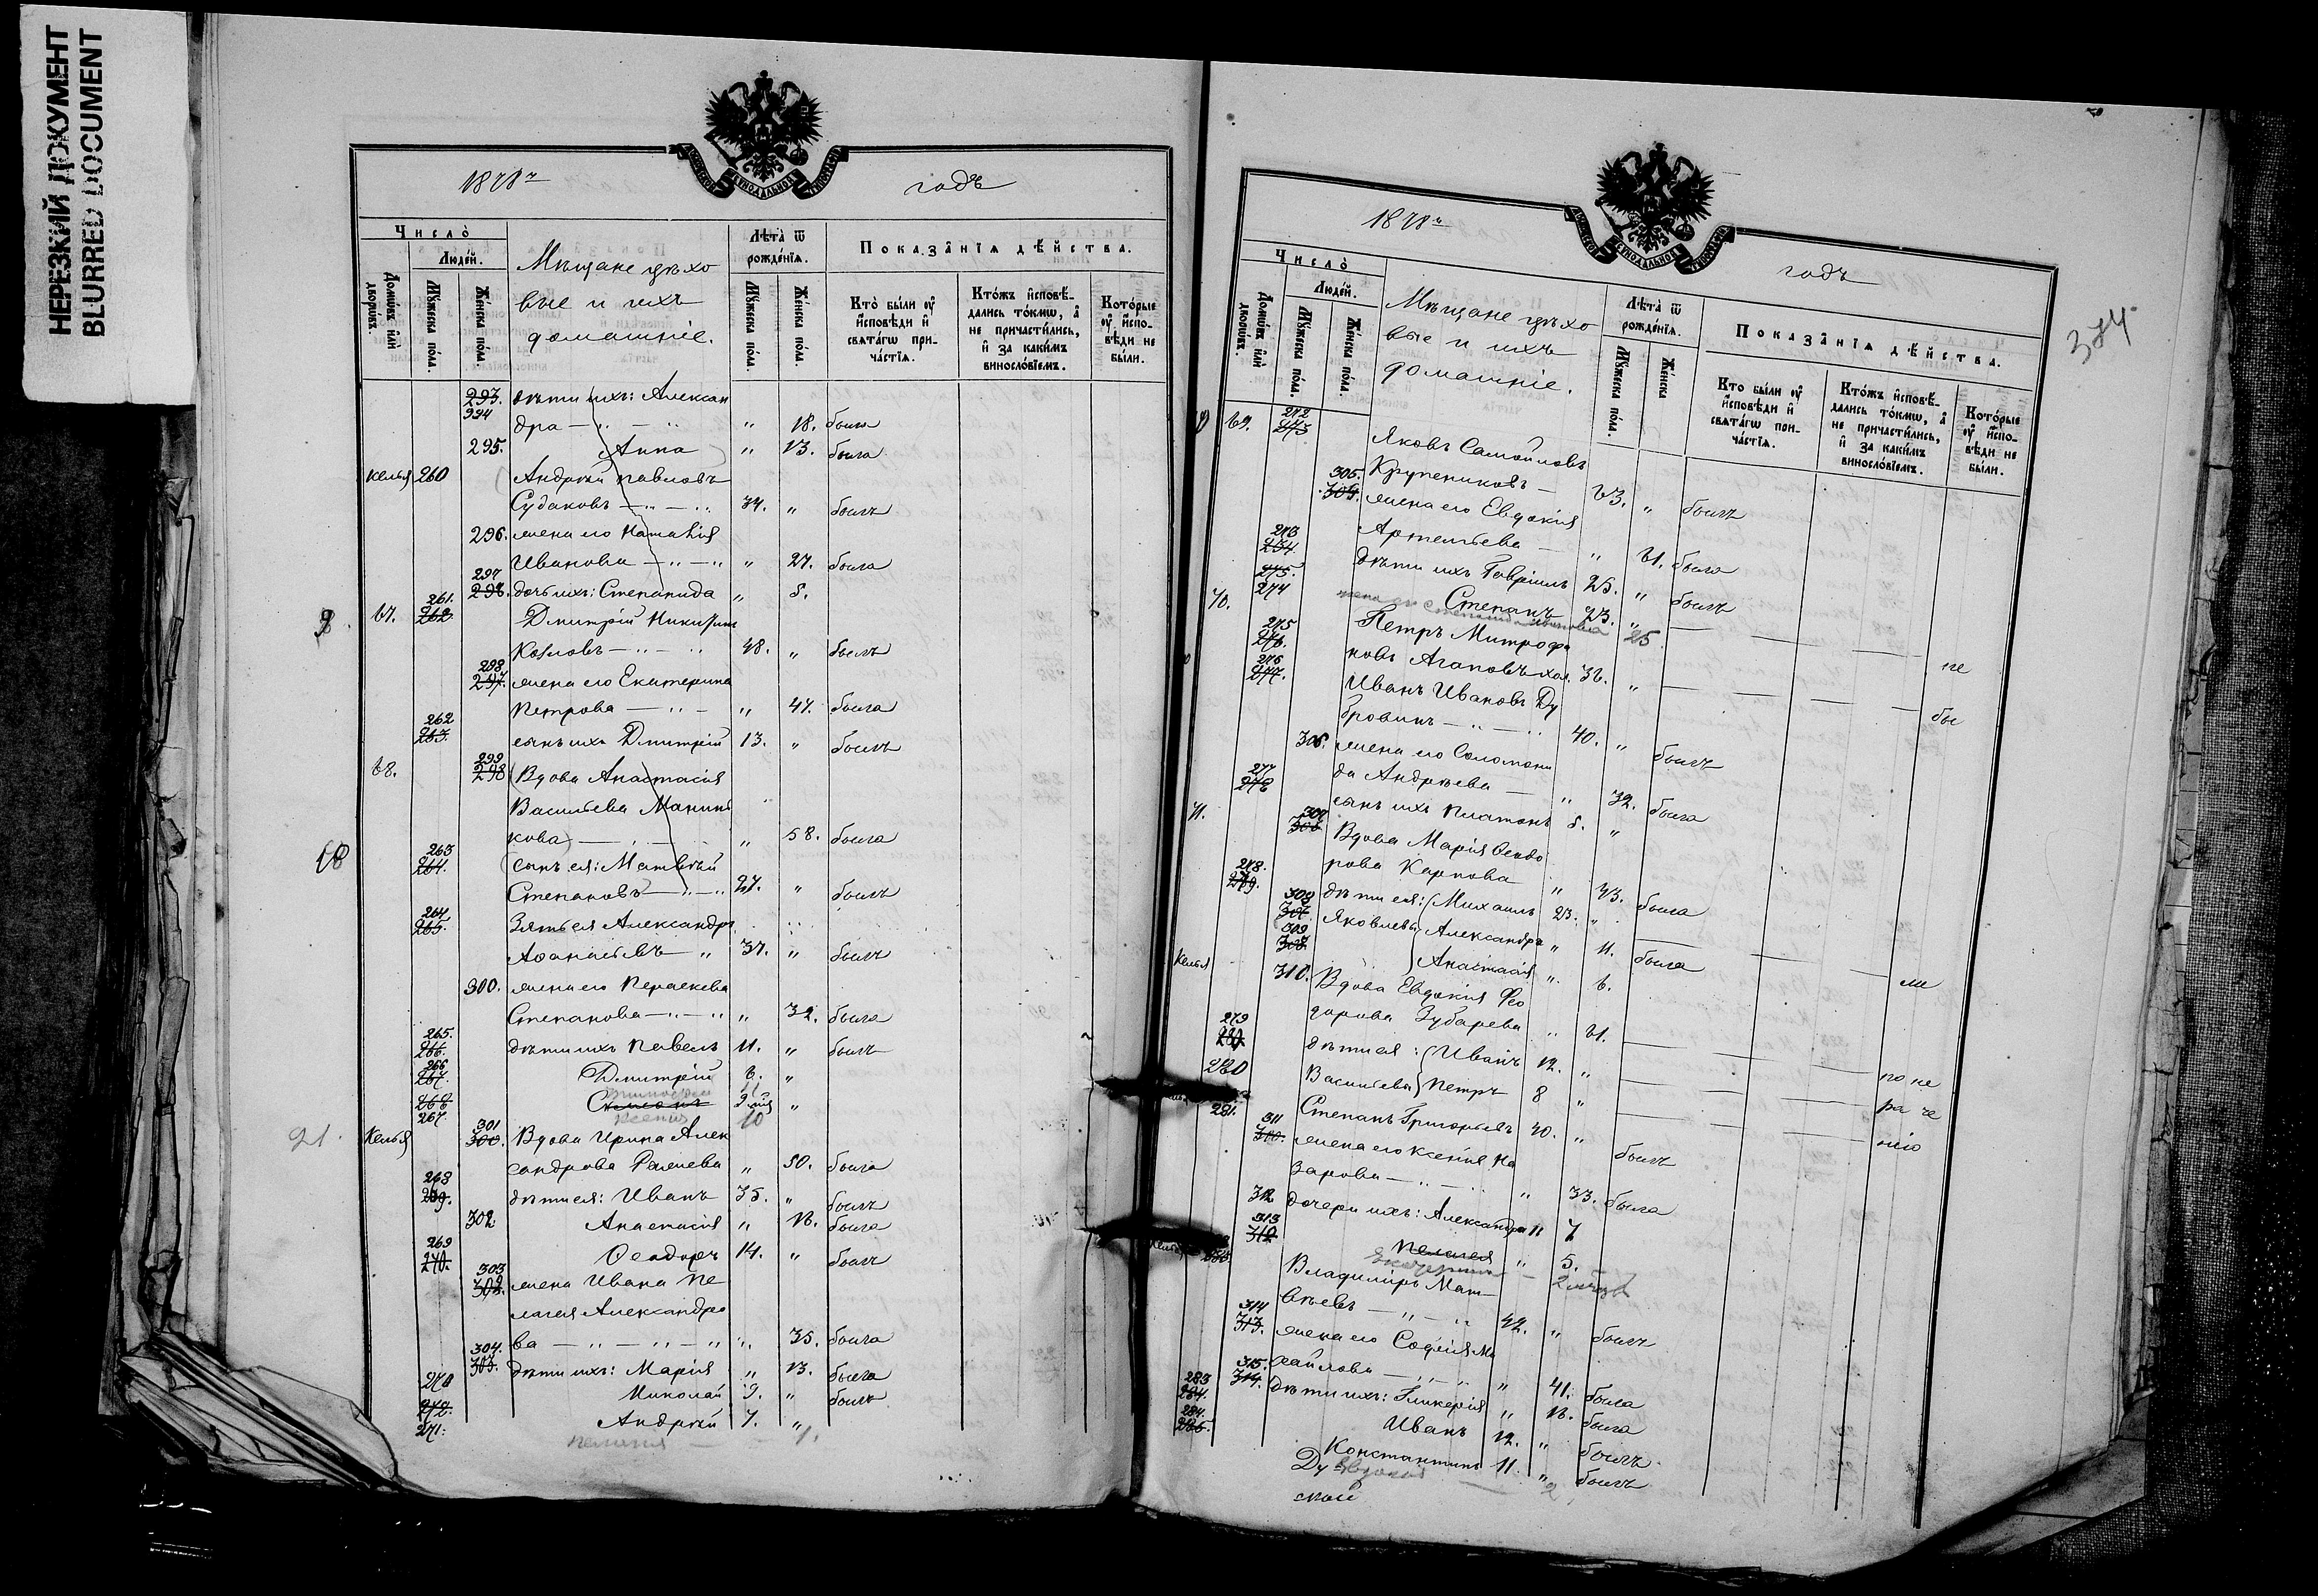 НЕРЕЗКИЙ ДОКУМЕНТ
BLURRED DOCUMENT
1878й годъ
Число̀
Людей.
Домѡвъ или дворѡвъ.
Мꙋжеска пола.
Женска пола.
Мѣщане цѣхо
вые и ихъ
домашніе.
Лѣта ѿ рожденїѧ.
Мꙋжеска пола.
Женска пола.
Показанїѧ дѣйства.
Кто были оу исповѣди и свѧтагѡ причастїѧ.
Ктожъ исповѣдались токмѡ, а не причастились, и за какимъ винословїемъ.
Которые оу исповѣди не были.
293. дѣти ихъ: Алексан
294 дра — " — " " 18. была
295. Анна " 13. была
келья 260 Андрей Павловъ
Судаковъ — " — " 34. " былъ
296. жена его Наталія
Иванова — " — " " 27. была
297
296. дочь ихъ: Степанида " 5.
261.
67. 262 Дмитрій Никитинъ
Козловъ — " — " 48. " былъ
298.
297. жена его Екатерина
Петрова — " — " 47. была
262
263. сынъ ихъ Дмитрій 13. " былъ
299
68. 298 Вдова Анастасія
Васильева
кова " 58. была
263
264. сынъ ея: Матвѣй
Степановъ — " — " 27. " былъ
264
265. Зять ея Александръ
Аѳанасьевъ " 37. " былъ
300. жена его Параскева
Степанова — " — " " 32. была
265.
266. дѣти ихъ Павелъ 11. " былъ
266
267. Дмитрій 6. "
268 Симеонъ "
267. Ксенія 10
21. 301
Келья 300. Вдова Ирина Алек
сандрова " 50. была
268
269. дѣти ея: Иванъ 35. " былъ
302 Анастасія " 16. была
269
270. Ѳеодоръ 14. " былъ
303
302. жена Ивана Пе
лагея Александро
ва — " — " — " " 35. была
304.
303. дѣти ихъ: Марія " 13. была
270
272. Николай 9. " былъ
271. Андрей 7. "
Пелагея
1878й годъ
374
Число̀
Людей.
Домѡвъ или дворѡвъ.
Мꙋжеска пола.
Женска пола.
Мѣщане цѣхо
вые и ихъ
домашніе.
Лѣта ѿ рожденїѧ.
Мꙋжеска пола.
Женска
Показанїѧ дѣйства.
Кто были оу исповѣди и свѧтагѡ причастїѧ.
Ктожъ исповѣдались токмѡ, а не причастились, и за какимъ винословїемъ.
Которые оу исповѣди не были.
272
69. 273 Яковъ Самойловъ
Крупениковъ — 63. " былъ
305.
304. жена его Евдокія
Артемьева — " 61. была
273
234 дѣти ихъ Гавріилъ 25. " былъ
275.
274 Степанъ 23. "
70. 275
276. Петръ Митрофа
новъ Агаповъ хол. 36. " не
276
277. Иванъ Ивановъ Ду бы
бровинъ — " — " 40. " былъ
306. жена его Соломони
да Андреева — " 32. была
277
278 сынъ ихъ Платонъ 5. "
71. 307
306 Вдова Марія Ѳеодо
рова Карпова " 43. была
278.
279. дѣти ея: Михаилъ 23. "
308
307. Яковлевы Александра " 11. была
309
308 Анастасія " 6. ли
Келья 310. Вдова Евдокія Ѳео
дорова Зубарева " 61.
279
280. дѣти ея: Иванъ 12. " по не
280 Васильевы Петръ 8 " ра че
281. Степанъ Григорьевъ 40. " былъ нію
311
310. жена его Ксенія На
зарова — " — " " 33. была
312 дочери ихъ: Александра " 7
313
312 Пелагея " 5.
Екатерина
Владиміръ Мат
вѣевъ — " — " 42. " былъ
314
313. жена его Софія Ми
хайлова — " — " " 41. была
315.
314. дѣти ихъ: Гликерія " 16. была
283
284. Иванъ 12. " былъ
284.
285. Константинъ 11. " былъ
Евдокія 2
Ду
ской